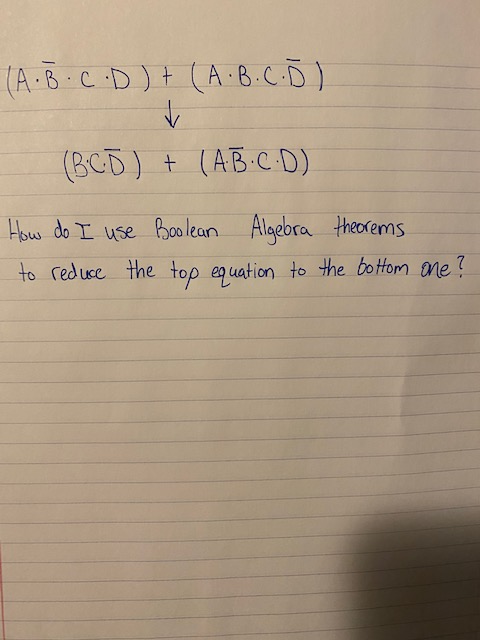 (A·B̅·C·D) + (A·B·C·D̅)
↓
(B·C·D̅) + (A·B̅·C·D)
How do I use Boolean Algebra theorems
to reduce the top equation to the bottom one?